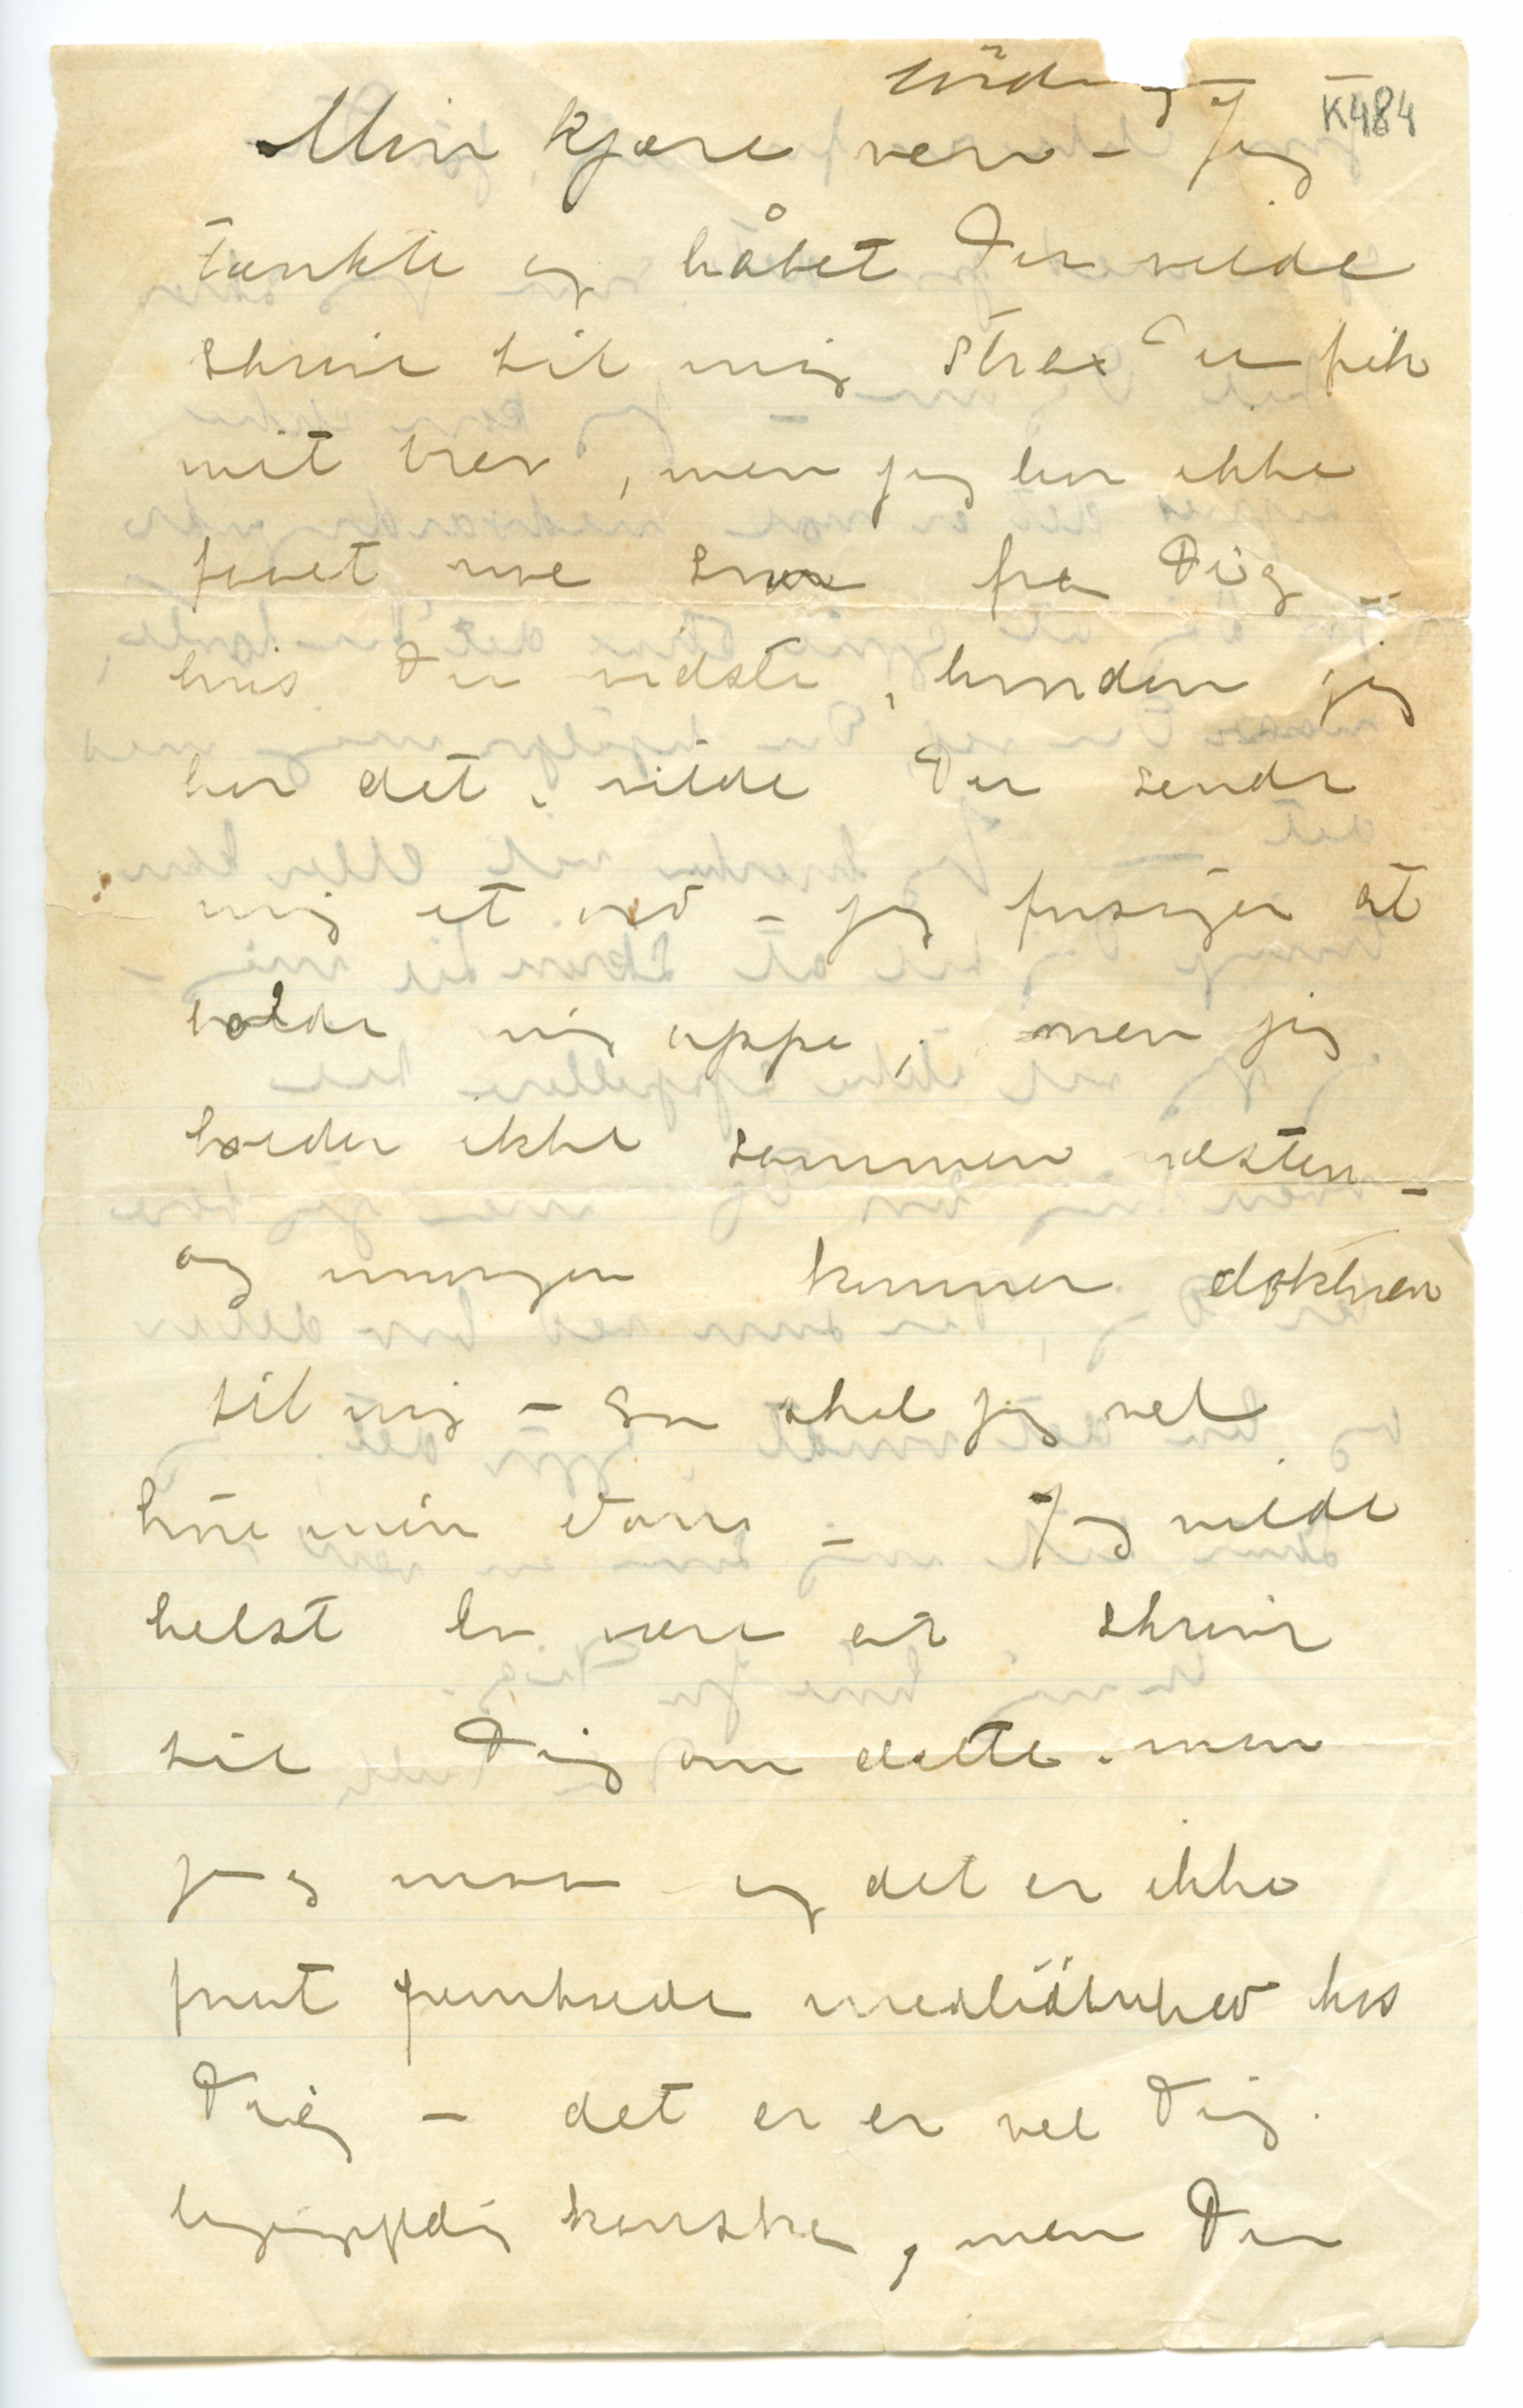 lördag
K484
Min kjære ven – Jeg
tænkte og håbet Du vilde
skrive til mig strax Du fik
mit brev, men jeg har ikke
faaet noe svar fra Dig –
hvis Du vidste, hvordan jeg
har det, vilde Du sende
mig et ord – jeg forsøger at
holde mig oppe, men jeg
holder ikke sammen næsten –
og imorgen kommer doktoren
til mig – saa skal jeg vel
høre min dom – Jeg vilde
helst la være at skrive
til Dig om dette. men
jeg maa og det er ikke
for at fremkalde medlidenhed hos
Dig – det er er vel Dig
ligegyldig kanske, men Du